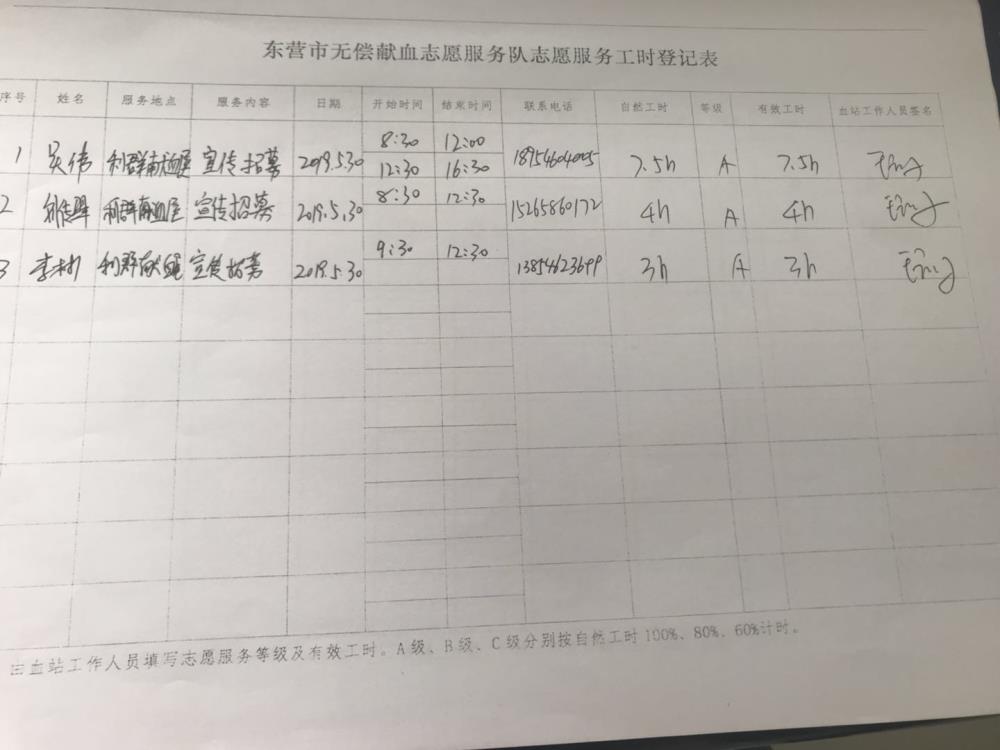 东营市无偿献血志愿服务队志愿服务工时登记表
序号 姓名 服务地点 服务内容 日期 开始时间 结束时间 联系电话 自然工时 等级 有效工时 血站工作人员签名
8:30 12:00
1 吴伟 利群献血屋 宣传招募 2019.5.30 18954604005 7.5h A 7.5h
12:30 16:30
8:30 12:30
2 利群献血屋 宣传招募 2019.5.30 15265860172 4h A 4h
9:30 12:30
3 李彬 利群献血屋 宣传招募 2019.5.30 13854623699 3h A 3h
由血站工作人员填写志愿服务等级及有效工时。A级、B级、C级分别按自然工时100%、80%、60%计时。